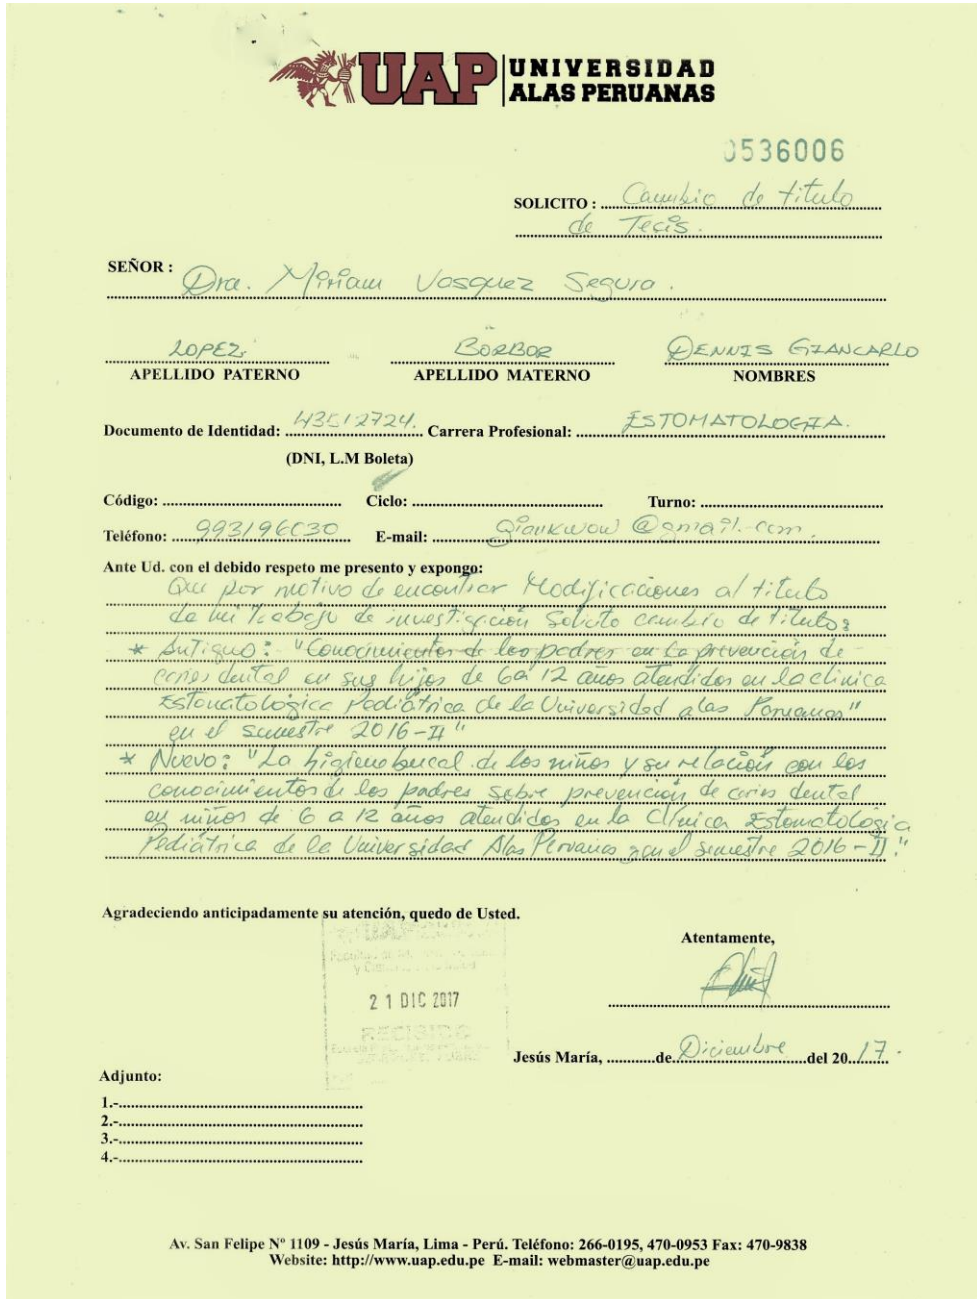 UAP UNIVERSIDAD
ALAS PERUANAS
0536006
SOLICITO : Cambio de titulo
de Tecis.
SEÑOR : Dra. Miriam Vasquez Segura.
LOPEZ BORBOR DENNIS GIANCARLO
APELLIDO PATERNO APELLIDO MATERNO NOMBRES
Documento de Identidad: 43512724. Carrera Profesional: ESTOMATOLOGIA.
(DNI, L.M Boleta)
Código: Ciclo: Turno:
Teléfono: 993196030 E-mail: @gmail.com.
Ante Ud. con el debido respeto me presento y expongo:
Que por motivo de encontrar Modificaciones al titulo
de mi Trabajo de investigación Solicito cambio de titulo:
* Antiguo: "Conocimientos de los padres en la prevención de
caries dental en sus hijos de 6 a 12 años atendidos en la clinica
Estomatológica Pediátrica de la Universidad alas Peruanas"
en el semestre 2016-II"
* Nuevo: "La higiene bucal de los niños y su relación con los
conocimientos de los padres sobre prevención de caries dental
en niños de 6 a 12 años atendidos en la Clínica Estomatológica
Pediátrica de la Universidad Alas Peruanas en el semestre 2016-II."
Agradeciendo anticipadamente su atención, quedo de Usted.
Atentamente,
21 DIC 2017
RECIBIDO
Jesús María, de Diciembre del 2017.
Adjunto:
1.-
2.-
3.-
4.-
Av. San Felipe Nº 1109 - Jesús María, Lima - Perú. Teléfono: 266-0195, 470-0953 Fax: 470-9838
Website: http://www.uap.edu.pe E-mail: webmaster@uap.edu.pe